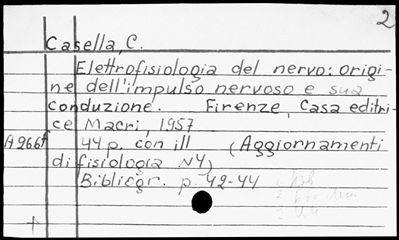 2
Casella, C.
Elettrofisiologia del nervo: origi-
ne dell'impulso nervoso e sua
conduzione. Firenze, Casa editri-
ce Macri, 1957
A266f 44 p. con ill (Aggiornamenti
di fisiologia N4)
Bibliogr. p. 42-44